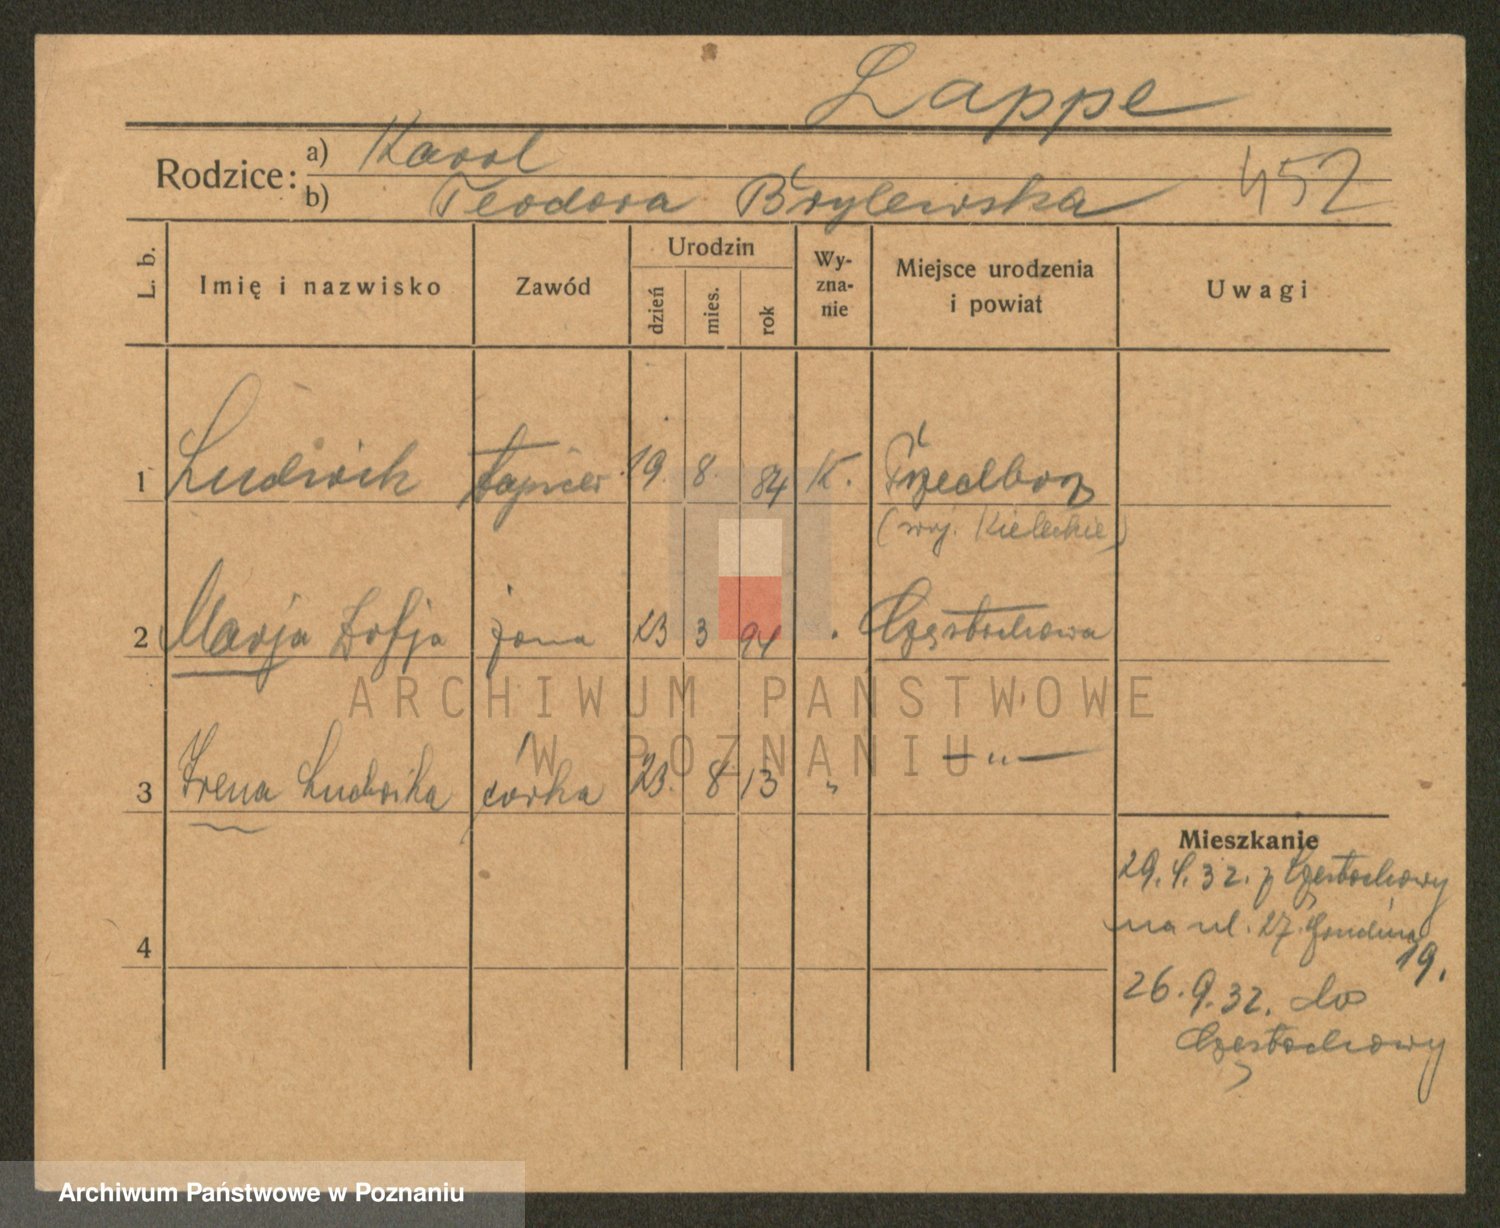 Lappe
Rodzice: a) Karol
b) Teodora Brylewska 452
L. b. Imię i nazwisko Zawód Urodzin dzień mies. rok Wy-zna-nie Miejsce urodzenia i powiat Uwagi
1 Ludwik tapicer 19. 8. 84 K. Przedborz
(woj. Kieleckie)
2 Marja Zofja żona 23 3 94 " Częstochowa
3 Irena Ludwika córka 23. 8 13 " — " —
Mieszkanie
29.4.32. z Częstochowy
na ul. 27. Grudnia
19.
4
26.9.32. do
Częstochowy
ARCHIWUM PAŃSTWOWE
W POZNANIU
Archiwum Państwowe w Poznaniu